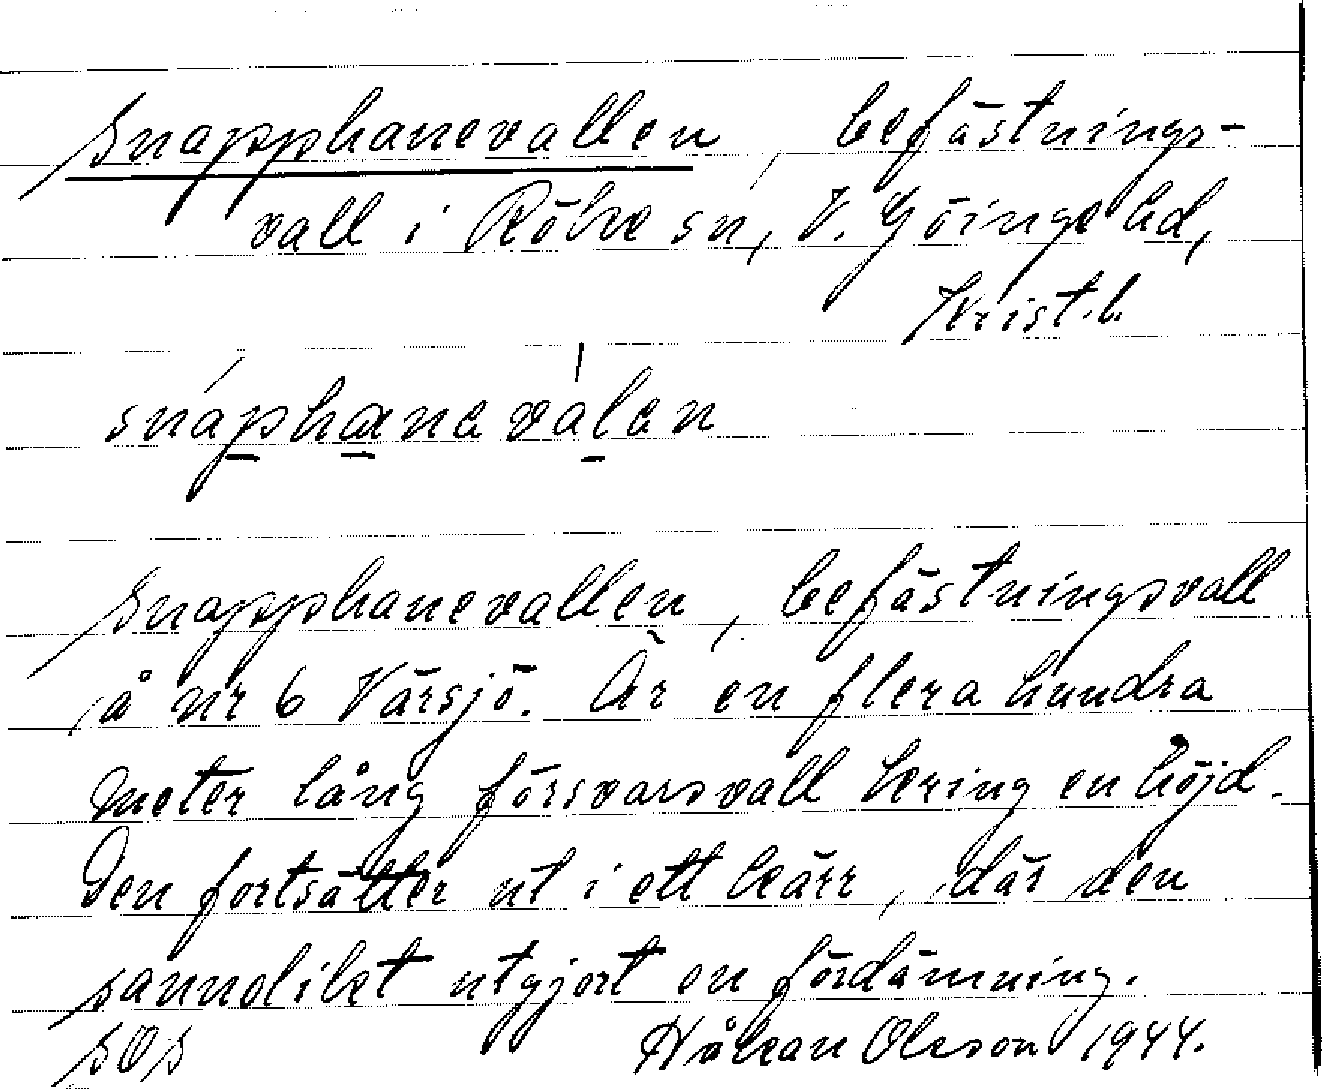 Snapphanevallen, befästnings-
vall i Röke sn, V. Göinge hd,
Krist.l.
snáphanevàlen
Snapphanevallen, befästningsvall
å nr 6 Värsjö. Är en flera hundra
meter lång försvarsvall kring en höjd.
Den fortsätter ut i ett kärr, där den
sannolikt utgjort en fördämning.
SOS Håkan Olsson 1944.